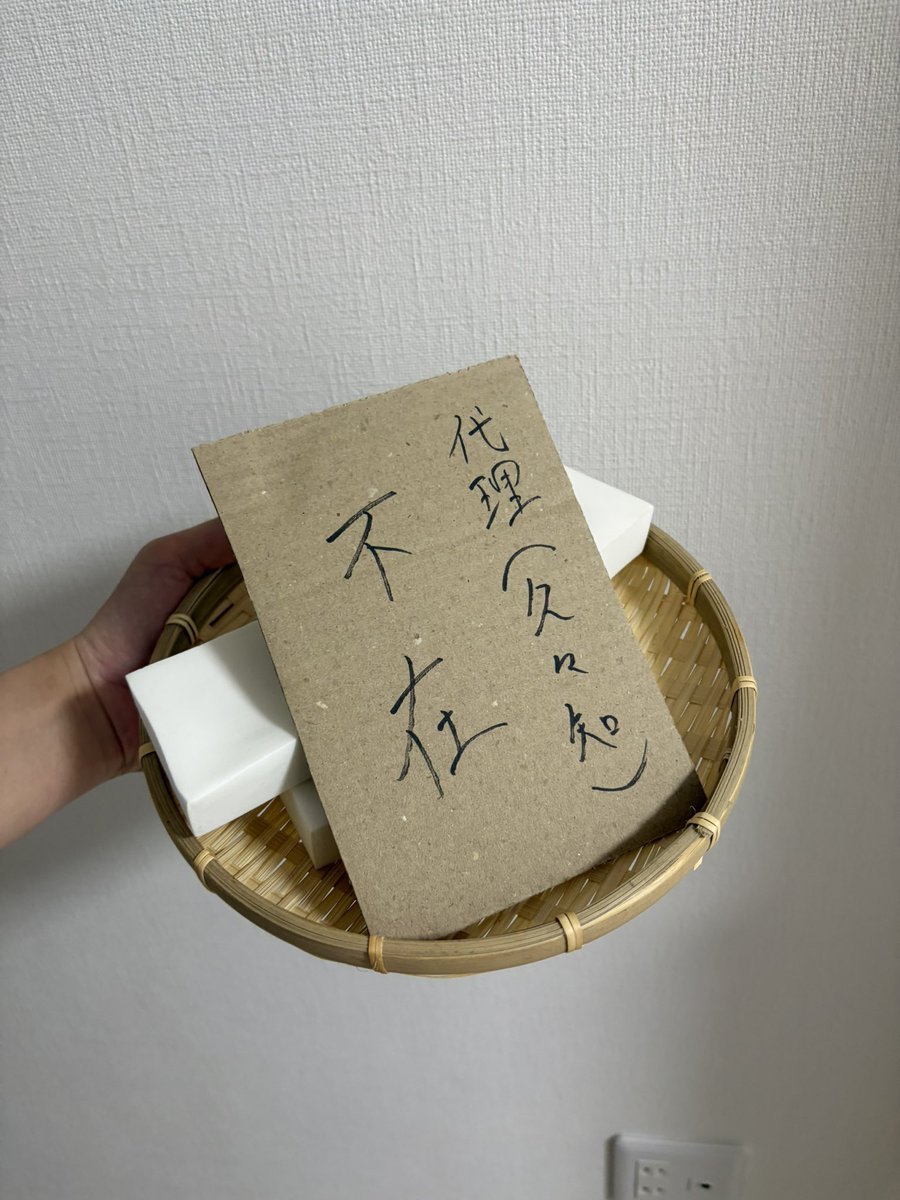 代理（久々知）
不在